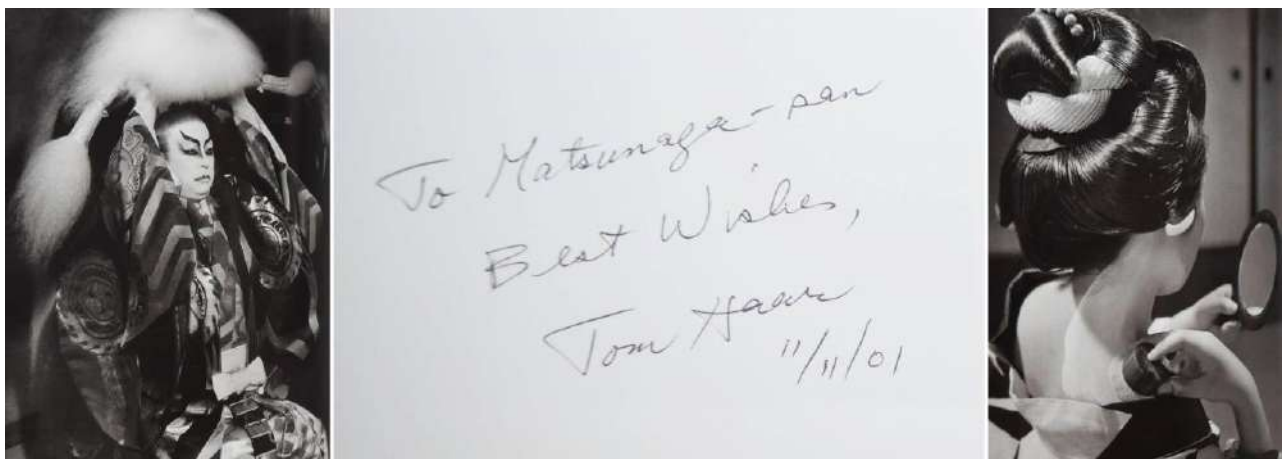 To Matsunaga-san
Best Wishes,
Tom Haar
11/11/01